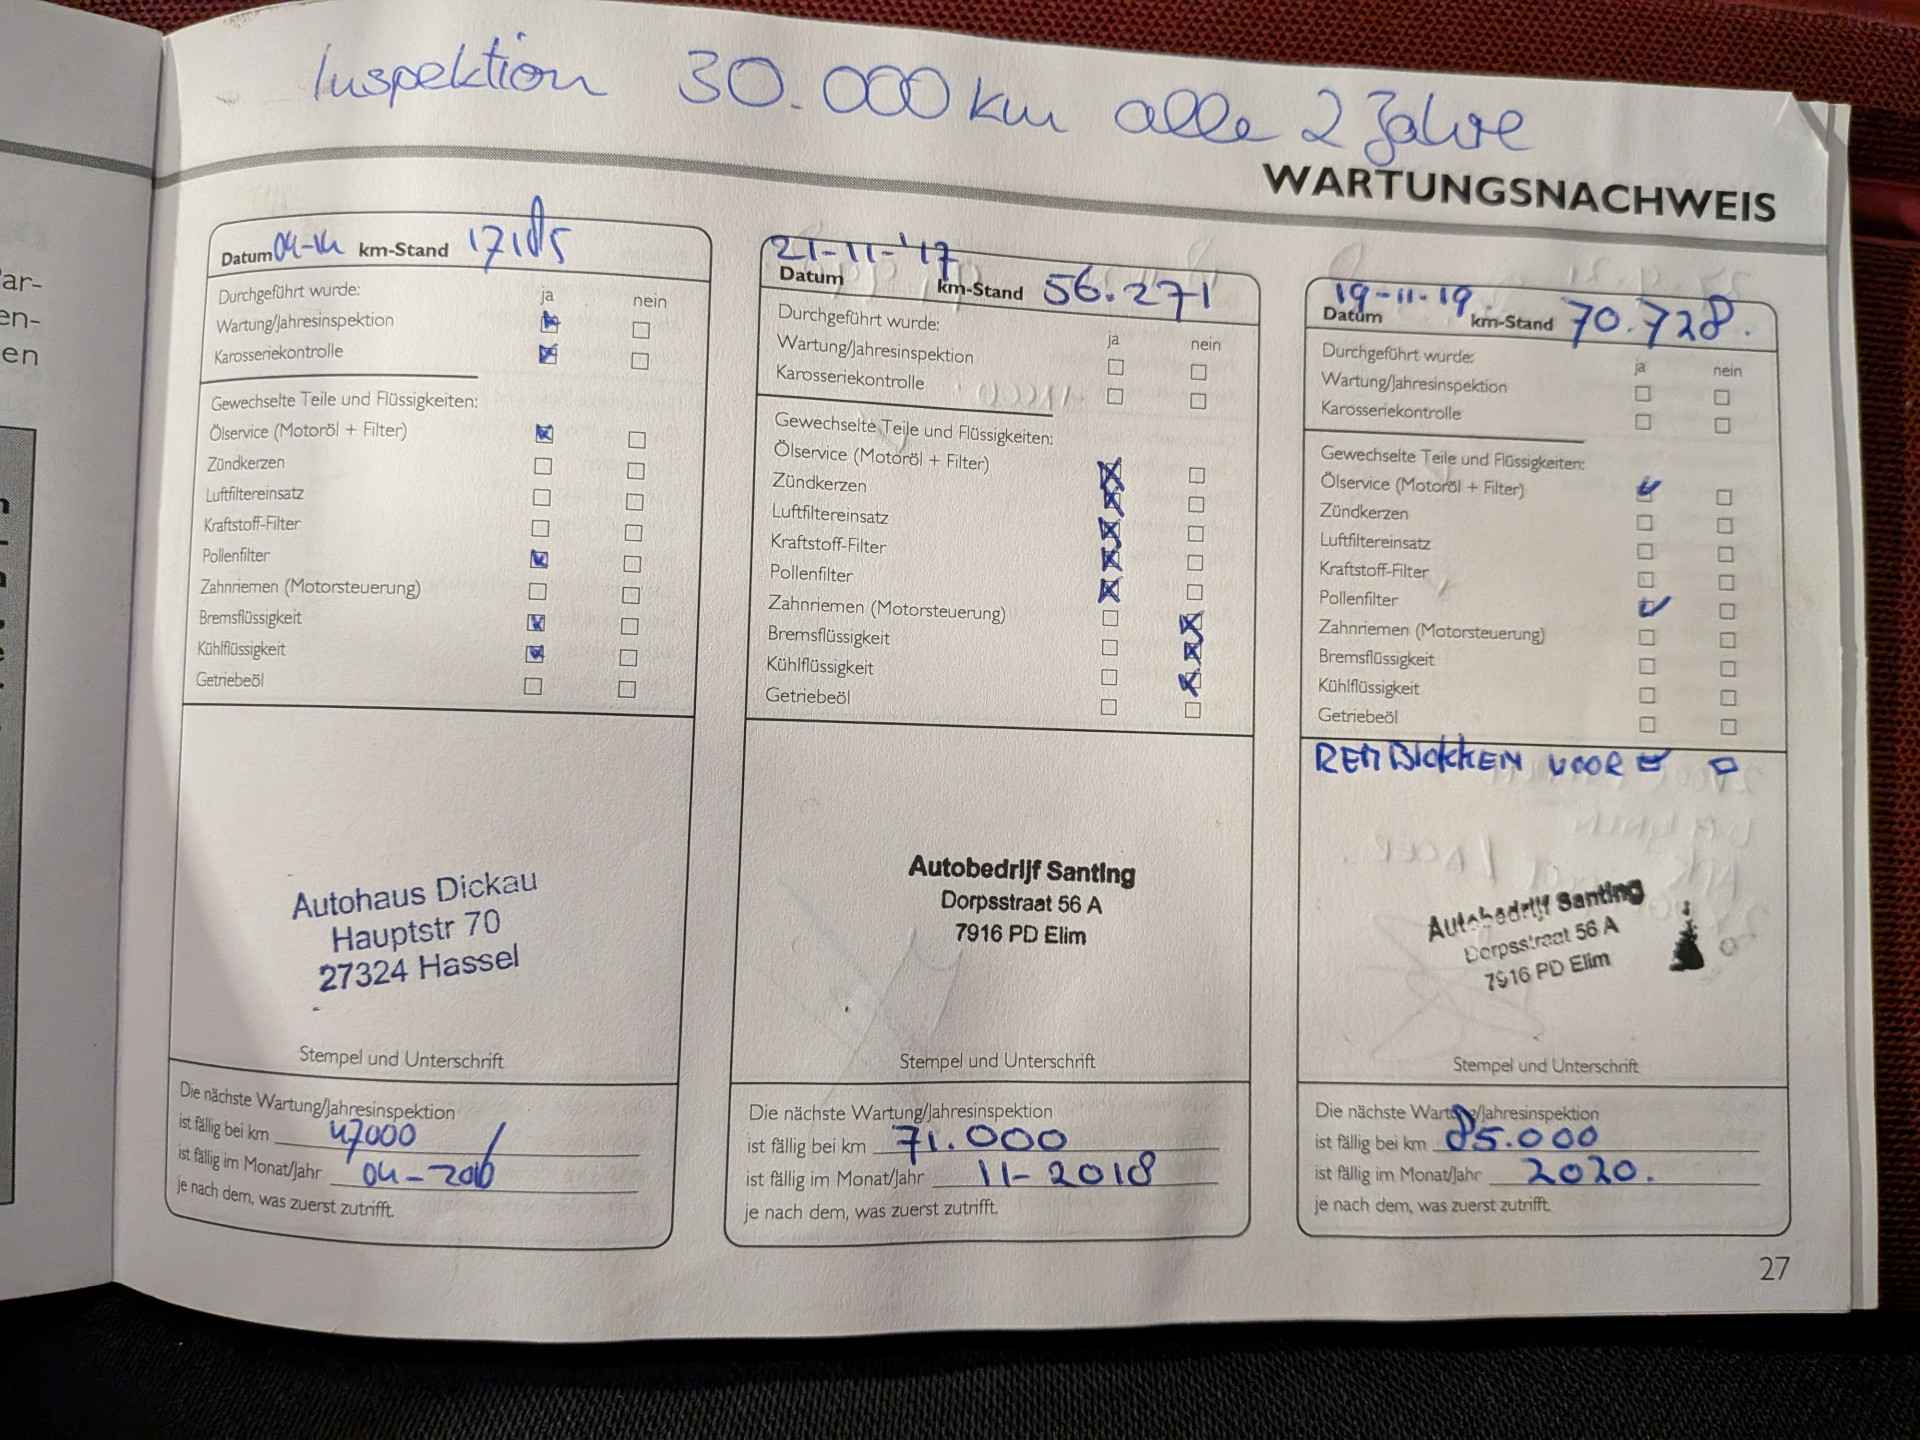 Inspektion 30.000 km alle 2 Jahre
WARTUNGSNACHWEIS
Datum 04-14 km-Stand 17185
Durchgeführt wurde: ja nein
Wartung/Jahresinspektion
Karosseriekontrolle
Gewechselte Teile und Flüssigkeiten:
Ölservice (Motoröl + Filter)
Zündkerzen
Luftfiltereinsatz
Kraftstoff-Filter
Pollenfilter
Zahnriemen (Motorsteuerung)
Bremsflüssigkeit
Kühlflüssigkeit
Getriebeöl
Autohaus Dickau
Hauptstr 70
27324 Hassel
Stempel und Unterschrift
Die nächste Wartung/Jahresinspektion
ist fällig bei km 47000
ist fällig im Monat/Jahr 04-2016
je nach dem, was zuerst zutrifft.
21-11-'17
Datum km-Stand 56.271
Durchgeführt wurde: ja nein
Wartung/Jahresinspektion
Karosseriekontrolle
Gewechselte Teile und Flüssigkeiten:
Ölservice (Motoröl + Filter)
Zündkerzen
Luftfiltereinsatz
Kraftstoff-Filter
Pollenfilter
Zahnriemen (Motorsteuerung)
Bremsflüssigkeit
Kühlflüssigkeit
Getriebeöl
Autobedrijf Santing
Dorpsstraat 56 A
7916 PD Elim
Stempel und Unterschrift
Die nächste Wartung/Jahresinspektion
ist fällig bei km 71.000
ist fällig im Monat/Jahr 11-2018
je nach dem, was zuerst zutrifft.
19-11-19
Datum km-Stand 70.728.
Durchgeführt wurde: ja nein
Wartung/Jahresinspektion
Karosseriekontrolle
Gewechselte Teile und Flüssigkeiten:
Ölservice (Motoröl + Filter)
Zündkerzen
Luftfiltereinsatz
Kraftstoff-Filter
Pollenfilter
Zahnriemen (Motorsteuerung)
Bremsflüssigkeit
Kühlflüssigkeit
Getriebeöl
REMBlokkEN VOOR
Autobedrijf Santing
Dorpsstraat 56 A
7916 PD Elim
Stempel und Unterschrift
Die nächste Wartung/Jahresinspektion
ist fällig bei km 85.000
ist fällig im Monat/Jahr 2020.
je nach dem, was zuerst zutrifft.
27